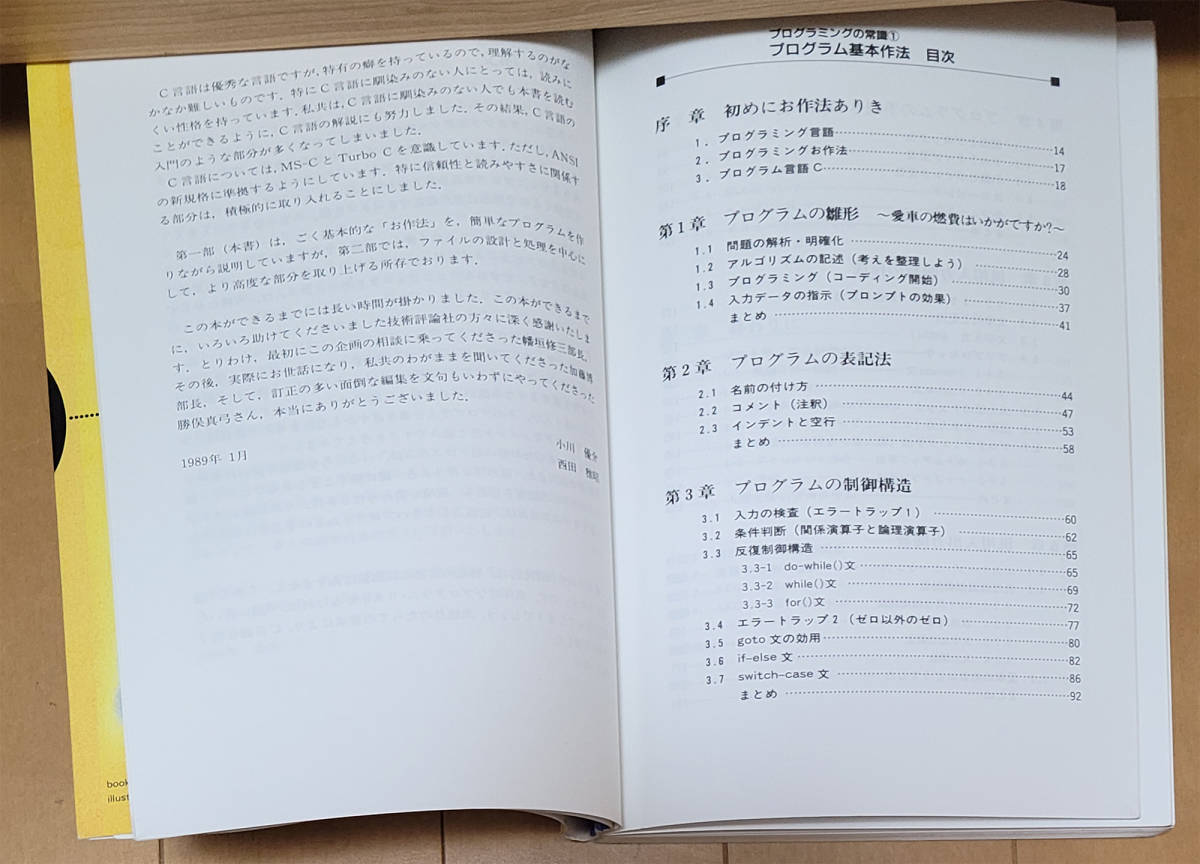 C言語は優秀な言語ですが，特有の癖を持っているので，理解するのがな
かなか難しいものです．特にC言語に馴染みのない人にとっては，読みに
くい性格を持っています．私共は，C言語に馴染みのない人でも本書を読む
ことができるように，C言語の解説にも努力しました．その結果，C言語の
入門のような部分が多くなってしまいました．
C言語については，MS-CとTurbo Cを意識しています．ただし，ANSI
の新規格に準拠するようにしています．特に信頼性と読みやすさに関係す
る部分は，積極的に取り入れることにしました．
第一部（本書）は，ごく基本的な「お作法」を，簡単なプログラムを作
りながら説明していますが，第二部では，ファイルの設計と処理を中心に
して，より高度な部分を取り上げる所存でおります．
この本ができるまでには長い時間が掛かりました．この本ができるまで
に，いろいろ助けてくださいました技術評論社の方々に深く感謝いたしま
す．とりわけ，最初にこの企画の相談に乗ってくださった幡垣修三部長，
その後，実際にお世話になり，私共のわがままを聞いてくださった加藤博
部長，そして，訂正の多い面倒な編集を文句もいわずにやってくださった
勝俣真弓さん，本当にありがとうございました．
1989年 1月
小川 優介
西田 雅昭
book
illust
プログラミングの常識①
プログラム基本作法 目次
序 章 初めにお作法ありき
1. プログラミング言語……14
2. プログラミングお作法……17
3. プログラム言語C……18
第1章 プログラムの雛形 〜愛車の燃費はいかがですか?〜
1.1 問題の解析・明確化……24
1.2 アルゴリズムの記述（考えを整理しよう）……28
1.3 プログラミング（コーディング開始）……30
1.4 入力データの指示（プロンプトの効果）……37
まとめ……41
第2章 プログラムの表記法
2.1 名前の付け方……44
2.2 コメント（注釈）……47
2.3 インデントと空行……53
まとめ……58
第3章 プログラムの制御構造
3.1 入力の検査（エラートラップ1）……60
3.2 条件判断（関係演算子と論理演算子）……62
3.3 反復制御構造……65
3.3-1 do-while()文……65
3.3-2 while()文……69
3.3-3 for()文……72
3.4 エラートラップ2（ゼロ以外のゼロ）……77
3.5 goto文の効用……80
3.6 if-else文……82
3.7 switch-case文……86
まとめ……92